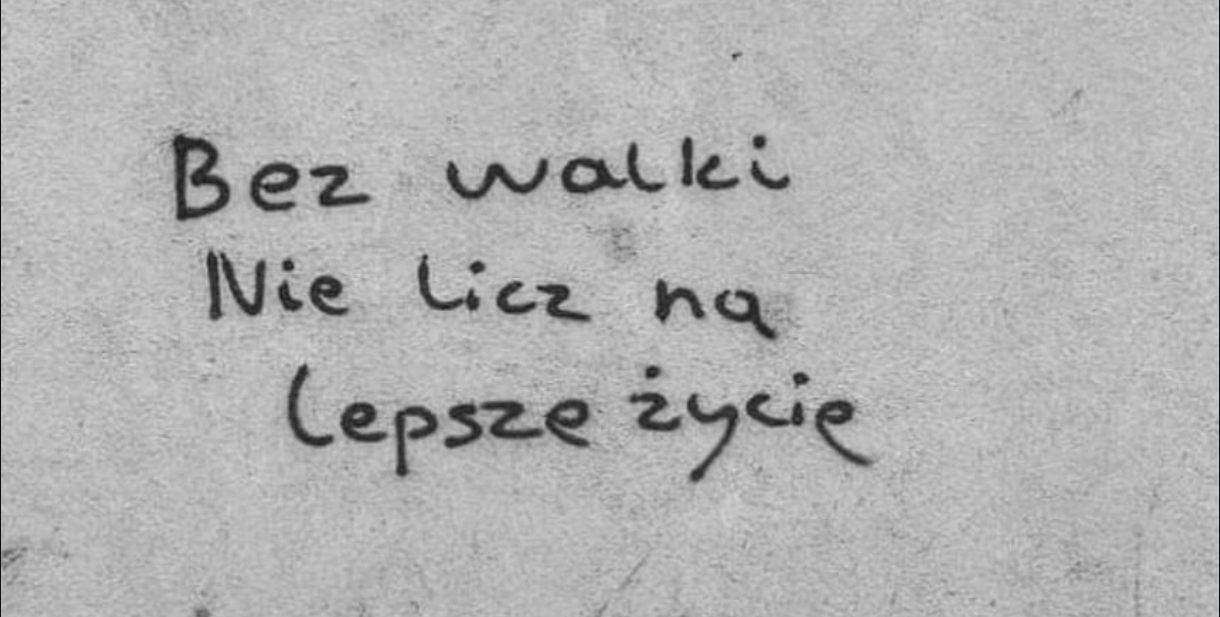 Bez walki
Nie licz na
lepsze życie